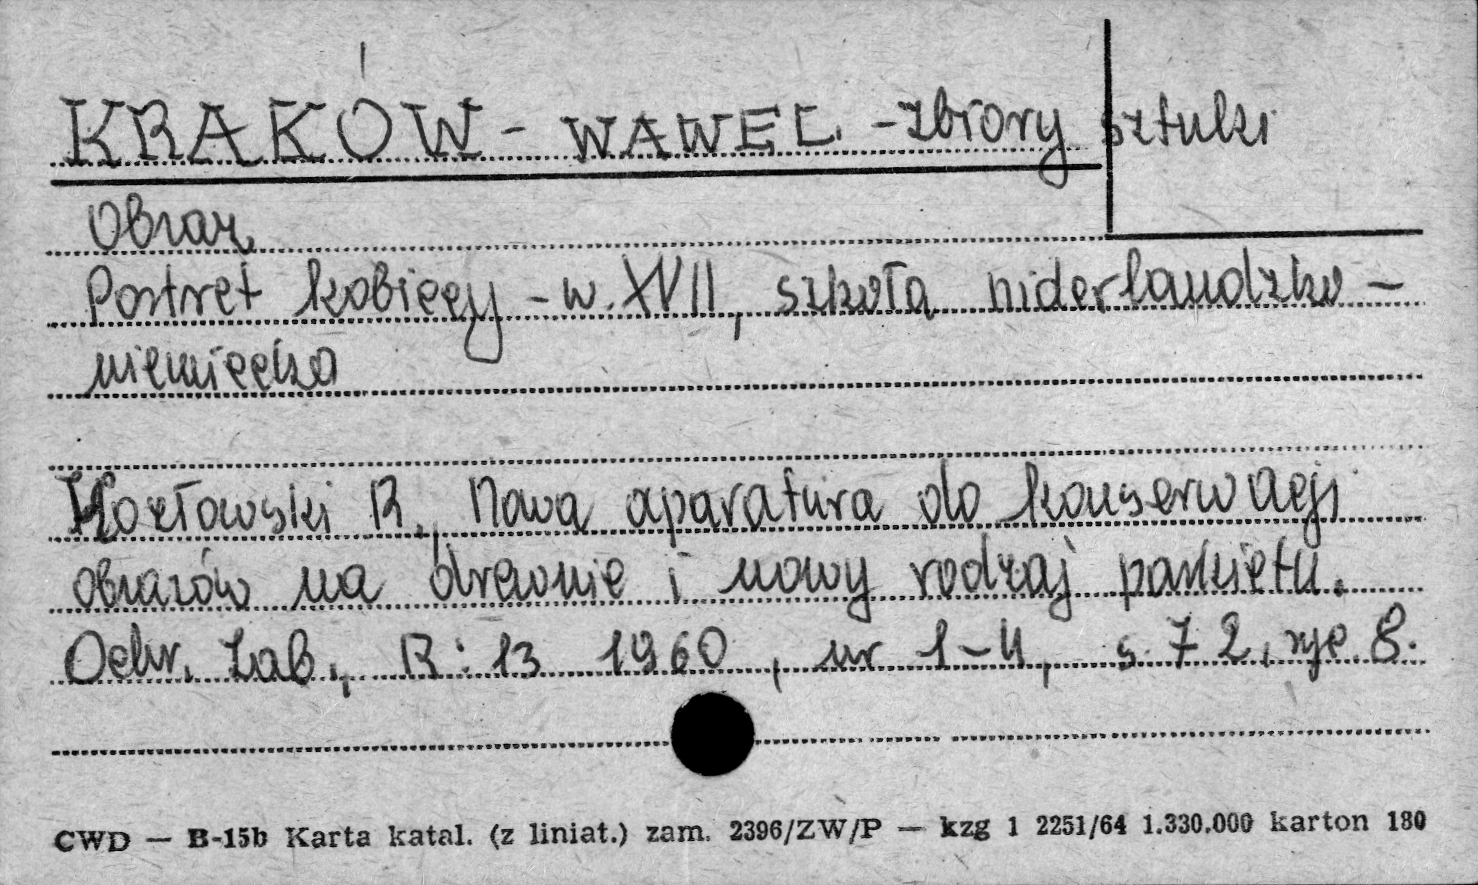 KRAKÓW - WAWEL - zbiory sztuki
Obraz
Portret kobiecy - w. XVII, szkoła niderlandzko -
niemiecka
Kozłowski R. Nowa aparatura do konserwacji
obrazów na drewnie i nowy rodzaj parkietu.
Ochr. Zab., R: 13 1960, nr 1-4, s. 72, ryc. 8.
CWD — B-15b Karta katal. (z liniat.) zam. 2396/ZW/P — kzg 1 2251/64 1.330.000 karton 180